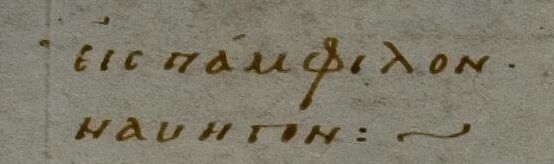 εἰς πάμφιλον.
ναυηγον: ~